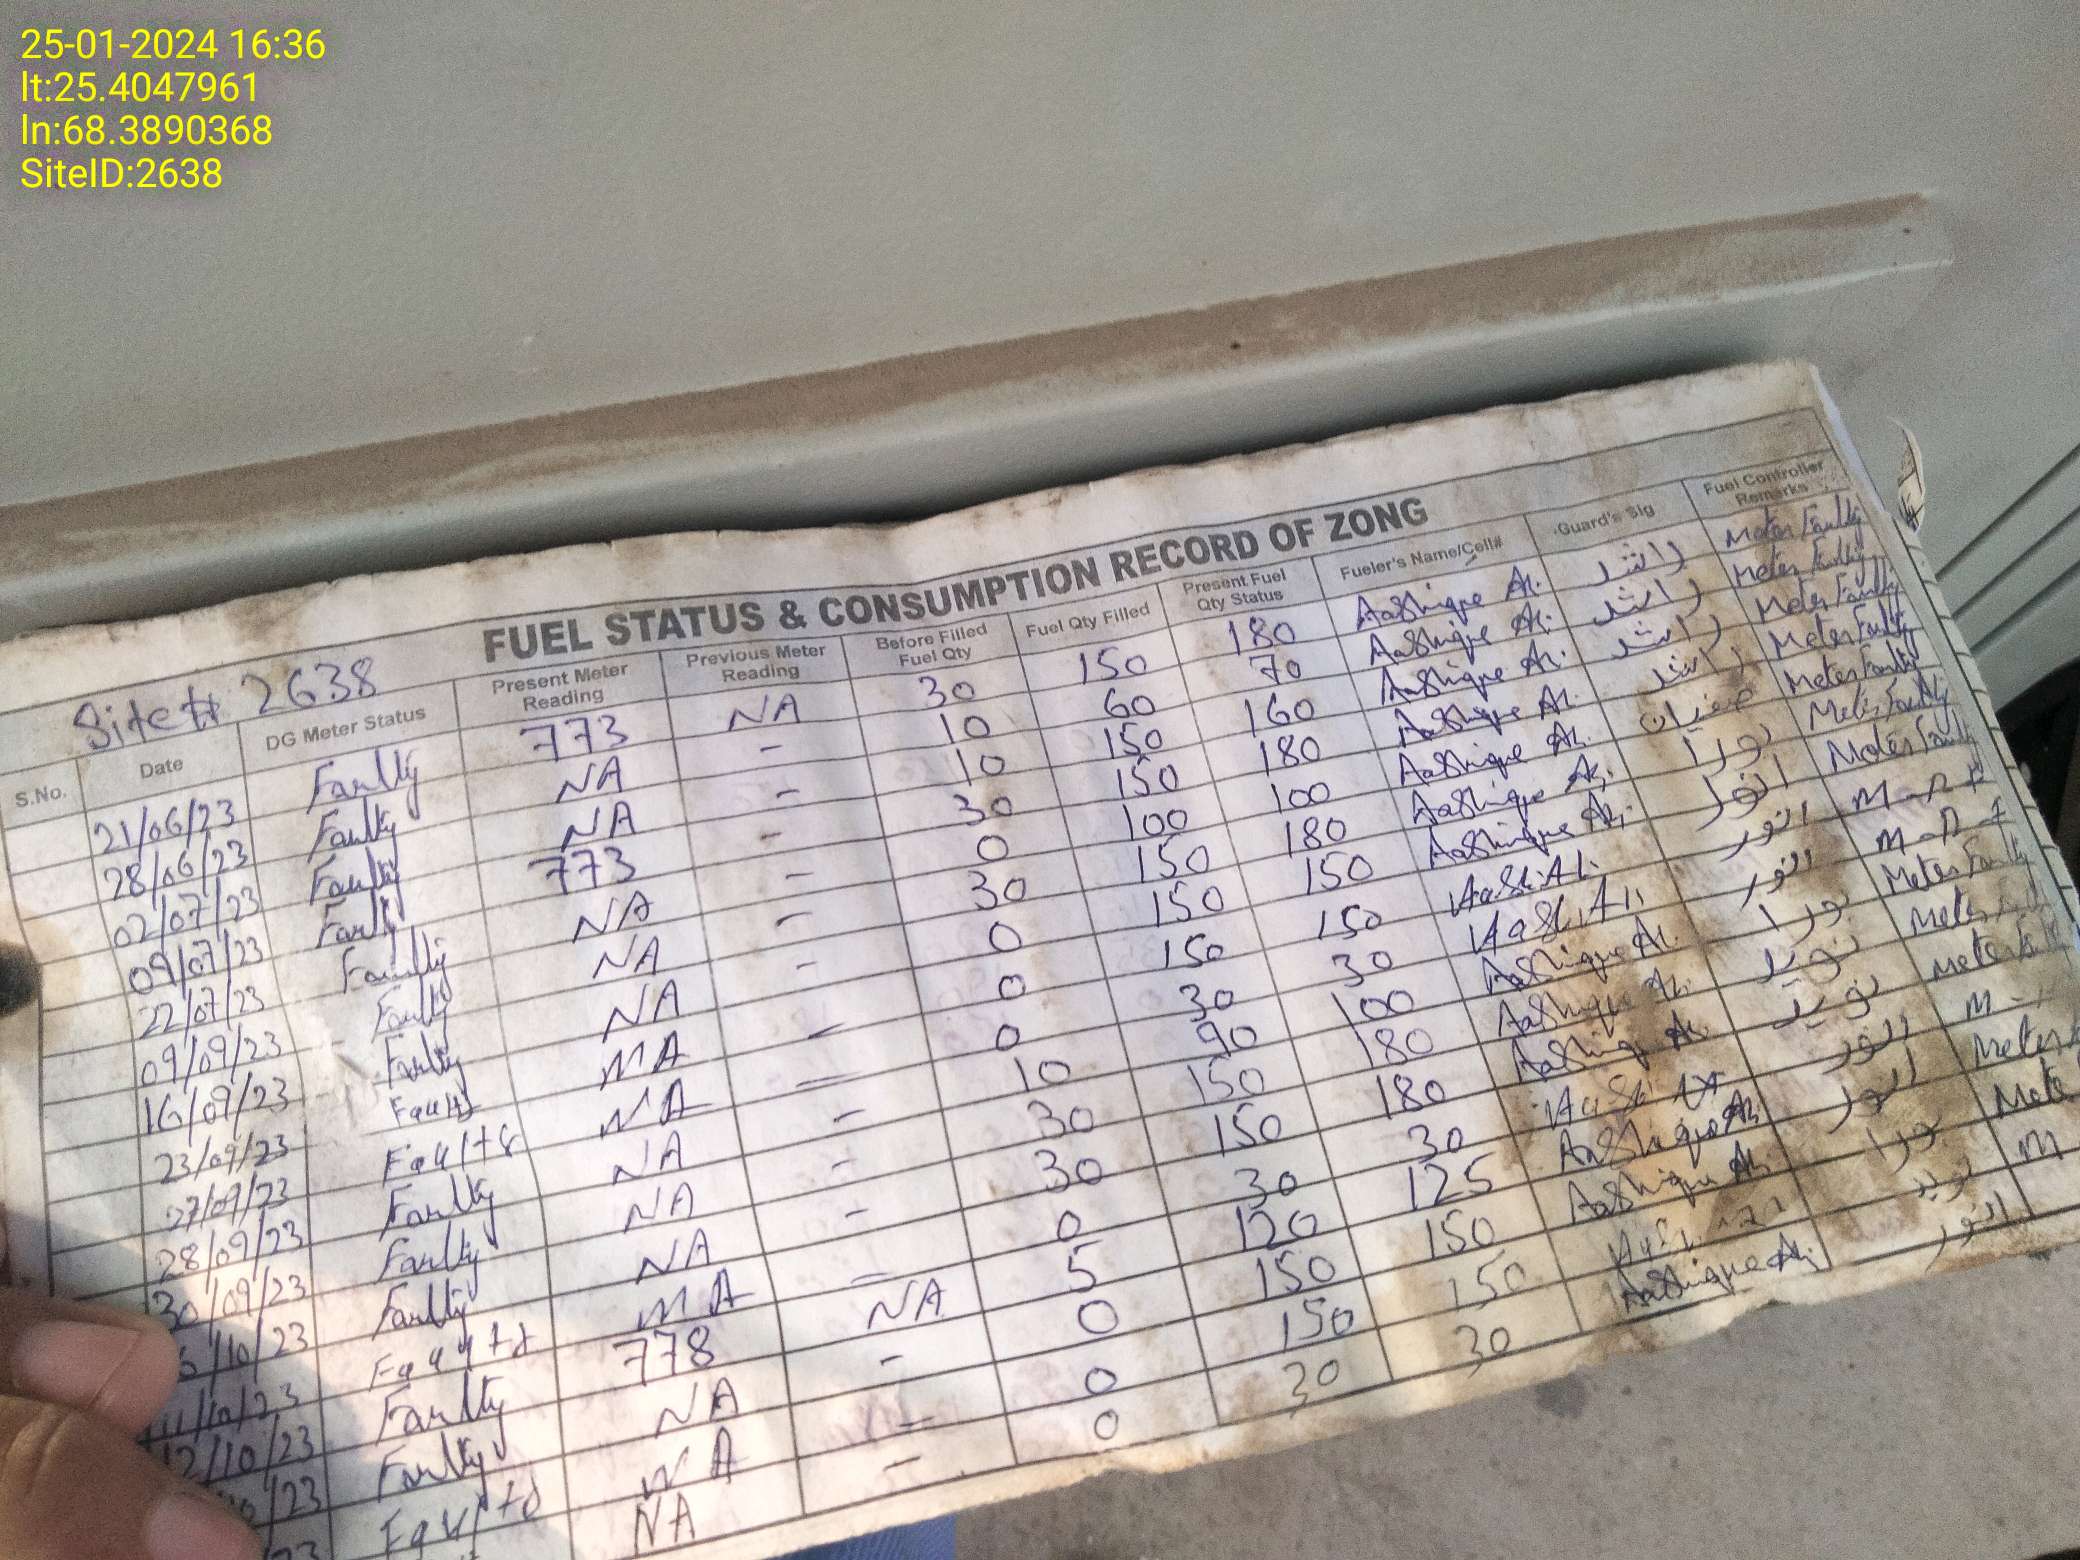 25-01-2024 16:36
lt:25.4047961
ln:68.3890368
SiteID:2638
FUEL STATUS & CONSUMPTION RECORD OF ZONG
Site# 2638
S.No. Date DG Meter Status Present Meter Reading Previous Meter Reading Before Filled Fuel Qty Fuel Qty Filled Present Fuel Qty Status Fueler's Name/Cell# Guard's Sig Fuel Controller Remarks
21/06/23 Faulty 773 NA 30 150 180 Aashique Ali راشد Meter Faulty
28/06/23 Faulty NA - 10 60 70 Aashique Ali راشد Meter Faulty
02/07/23 Faulty NA - 10 150 160 Aashique Ali راشد Meter Faulty
09/07/23 Faulty 773 - 30 150 180 Aashique Ali راشد Meter Faulty
22/07/23 Faulty NA - 0 100 100 Aashique Ali Meter Faulty
09/09/23 Faulty NA - 30 150 180 Aashique Ali نورا Meter Faulty
16/09/23 Faulty NA - 0 150 150 Aashique Ali النور Meter Faulty
23/09/23 Faulty NA - 0 150 150 النور
27/09/23 Faulty NA 0 30 30 النور
28/09/23 Faulty NA - 10 90 100 Aashique Ali نورا Meter Faulty
30/09/23 Faulty NA - 30 150 180 Aashique Ali نوید Meter
/10/23 Faulty NA - 30 150 180 Aashique Ali نوید Meter
11/10/23 NA - 0 30 30 النور
12/10/23 Faulty 778 NA 5 120 125 Aashique Ali النور Meter
/23 Faulty NA - 0 150 150 Aashique Ali نورا Mete
23 NA - 0 150 150 نوید M
NA - 0 30 30 Aashique Ali النور